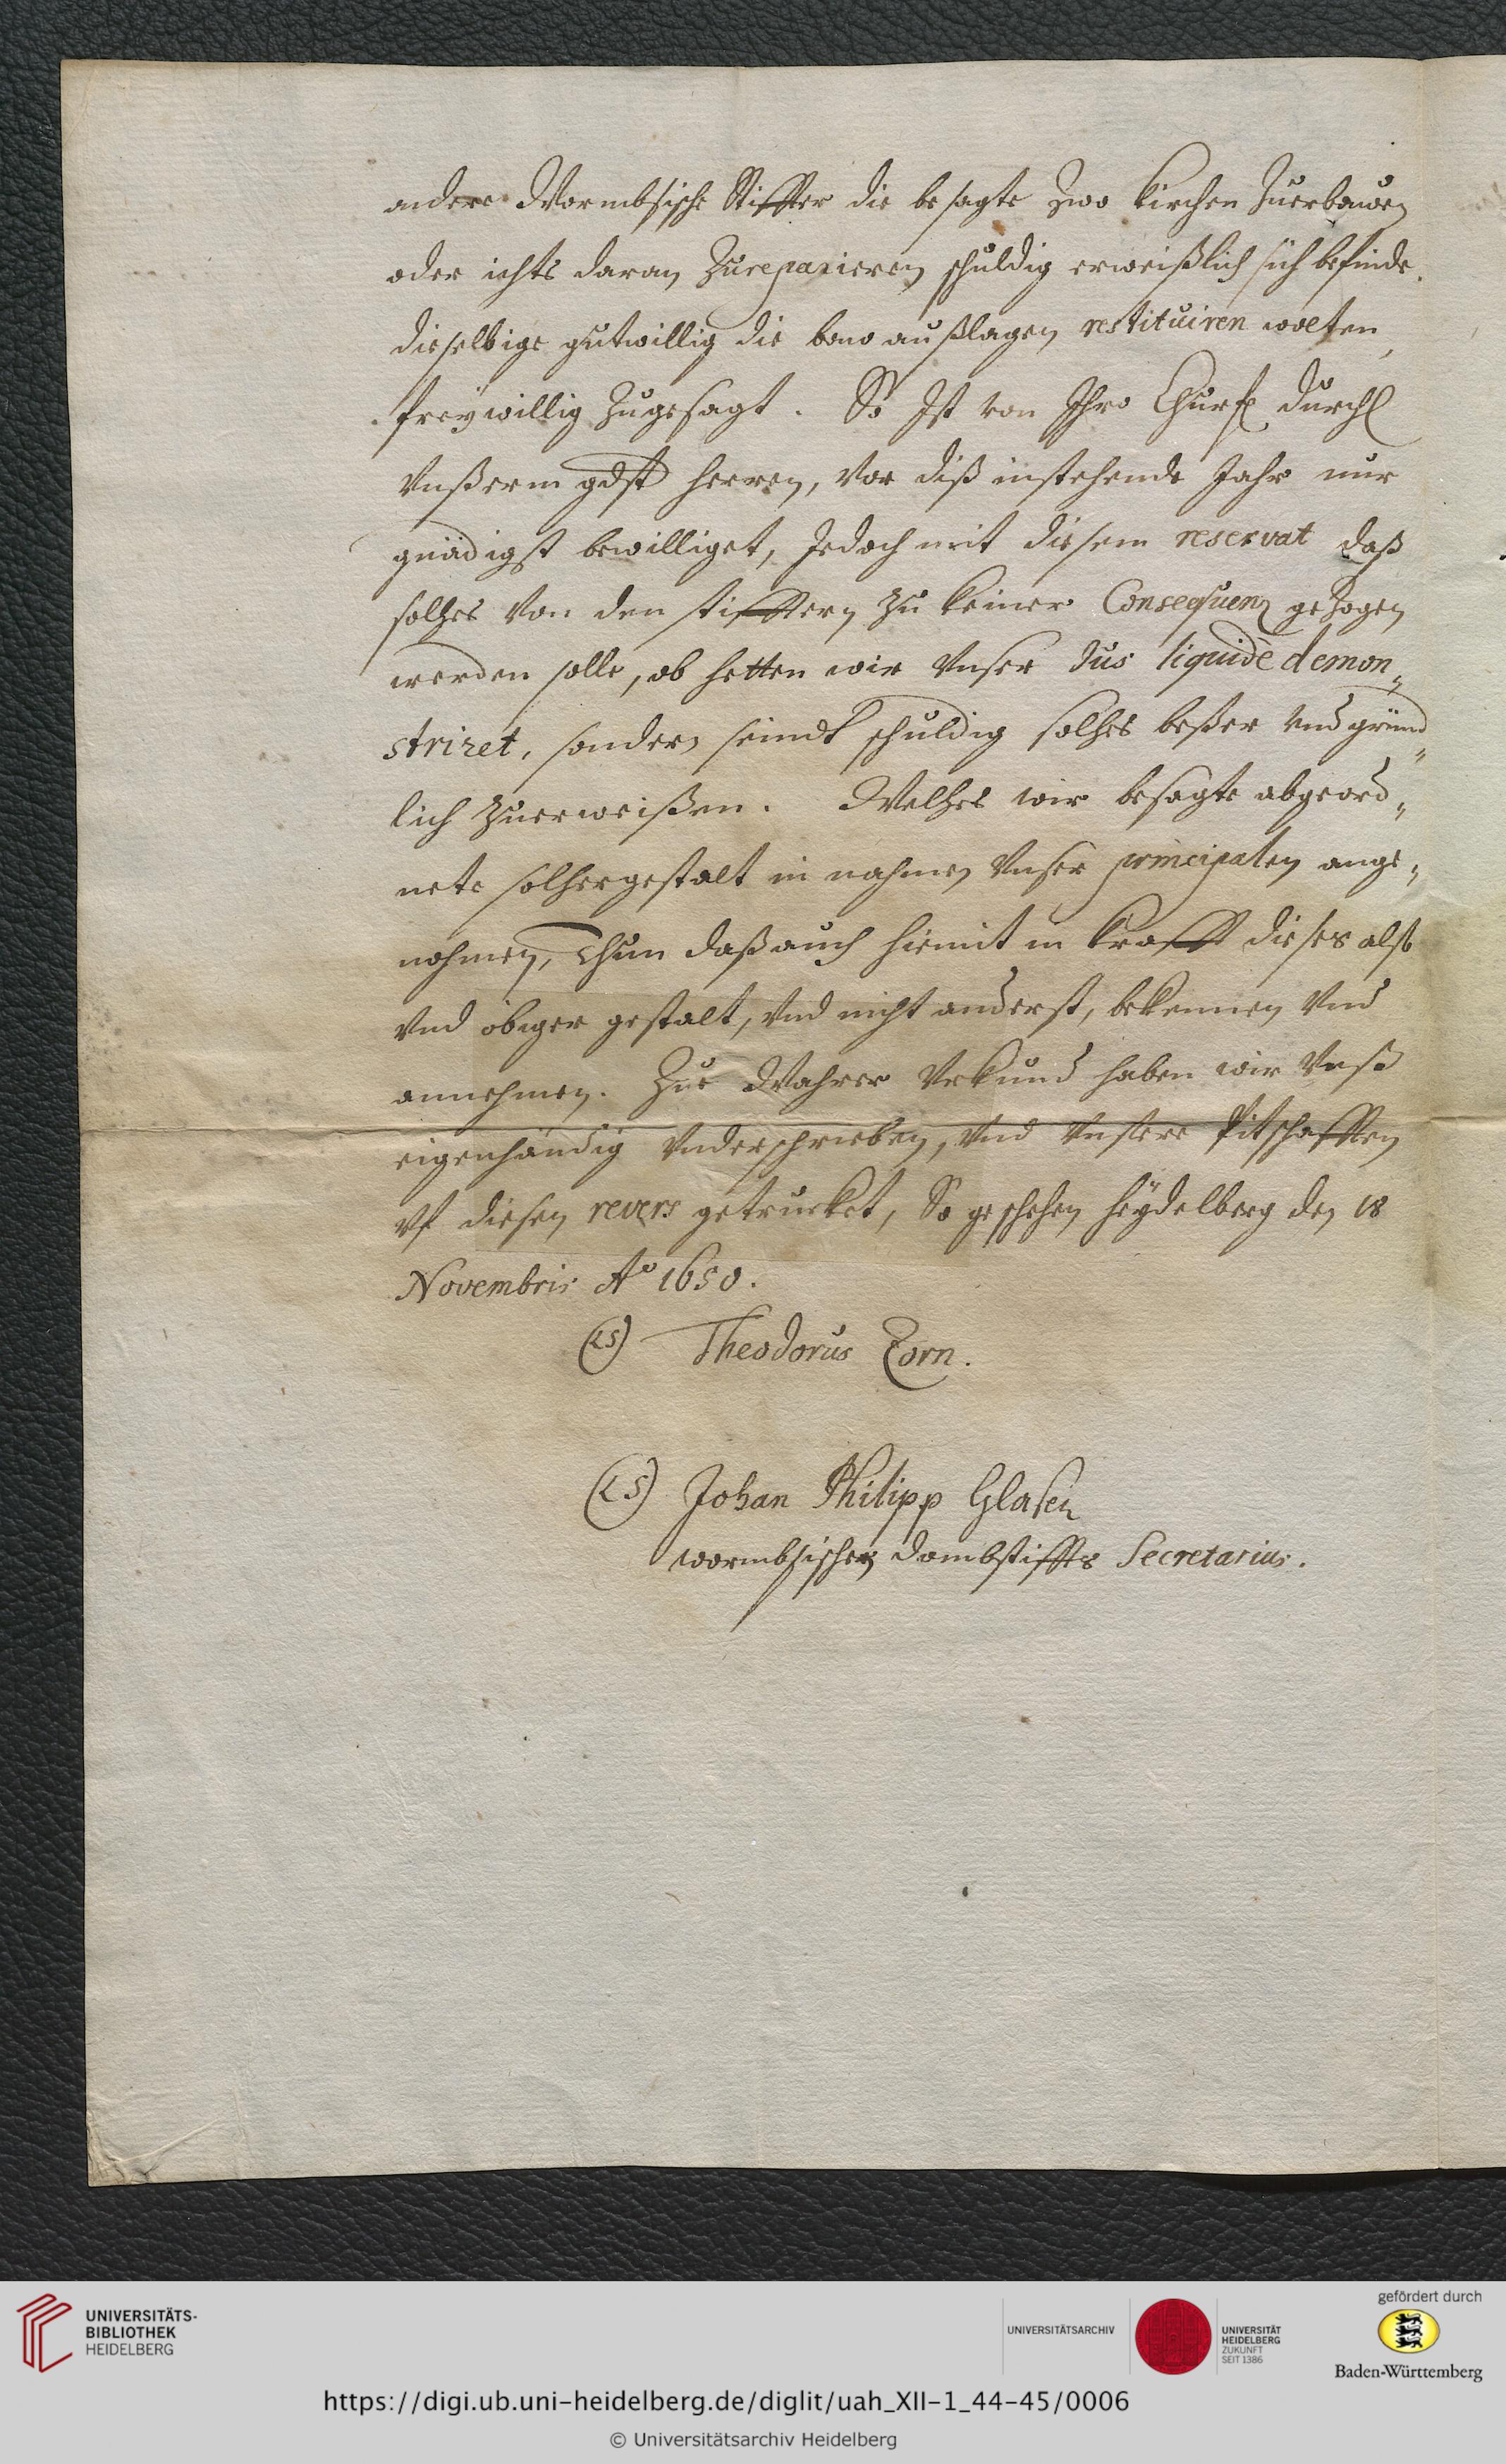 andere Wormbsische Stiffter die besagte zwo kirchen zuerbawen
oder ichts daran zureparieren schuldig erweißlich sich befinde,
dieselbige gutwillig die bawaußlagen restituiren wolten,
freywillig zugesagt. So Ist von Ihro Churf durchl
Vnßerm gdst herren, vor diß instehende Jahr nur
gnädigst bewilliget, Jedoch mit diesem reservat daß
solches von den stifftern zu keiner Consequenz gezogen
werden solle, ob hetten wir Vnser Jus liquidè demon„
striret, sondern seindt schuldig solches beßer vnd gründ„
lich zuerweißen. Welches wir besagte abgeord„
nete solchergestalt in nahmen Vnser principalen ange„
nohmen, Thun daß auch hiemit in krafft dieses also
vnd obiger gestalt, vnd nicht anderst, bekennen vnd
annehmen. Zue Wahrer Vrkund haben wir Vnß
eigenhändig Vnderschrieben, vnd Vnsere Pitschafften
vf diesen revers getrucket, So geschehen heydelberg den 18
Novembris Ao 1650.
(LS) Theodorus Zorn.
(LS) Johan Philipp
wormbsischen dombstiffts Secretarius.
UNIVERSITÄTS-
BIBLIOTHEK
HEIDELBERG
UNIVERSITÄTSARCHIV
UNIVERSITÄT
HEIDELBERG
ZUKUNFT
SEIT 1386
gefördert durch
Baden-Württemberg
https://digi.ub.uni-heidelberg.de/diglit/uah_XII-1_44-45/0006
© Universitätsarchiv Heidelberg